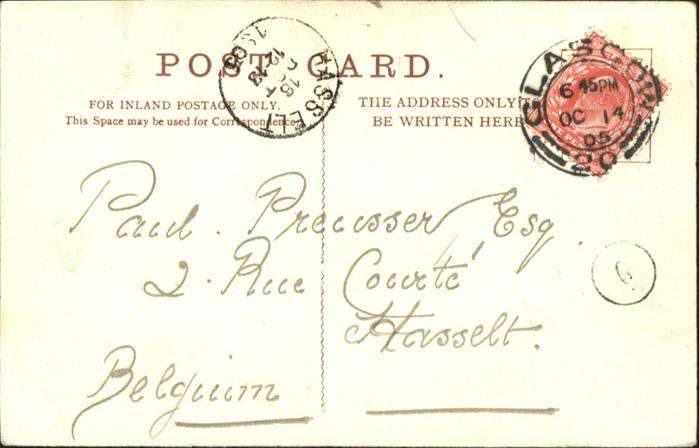 POST CARD.
FOR INLAND POSTAGE ONLY.
This Space may be used for Correspondence.
THE ADDRESS ONLY TO
BE WRITTEN HERE
HASSELT
GLASGOW
6 45PM
OC 14
05
Paul. Preusser Esq.
2. Rue Courté
Hasselt.
Belgium